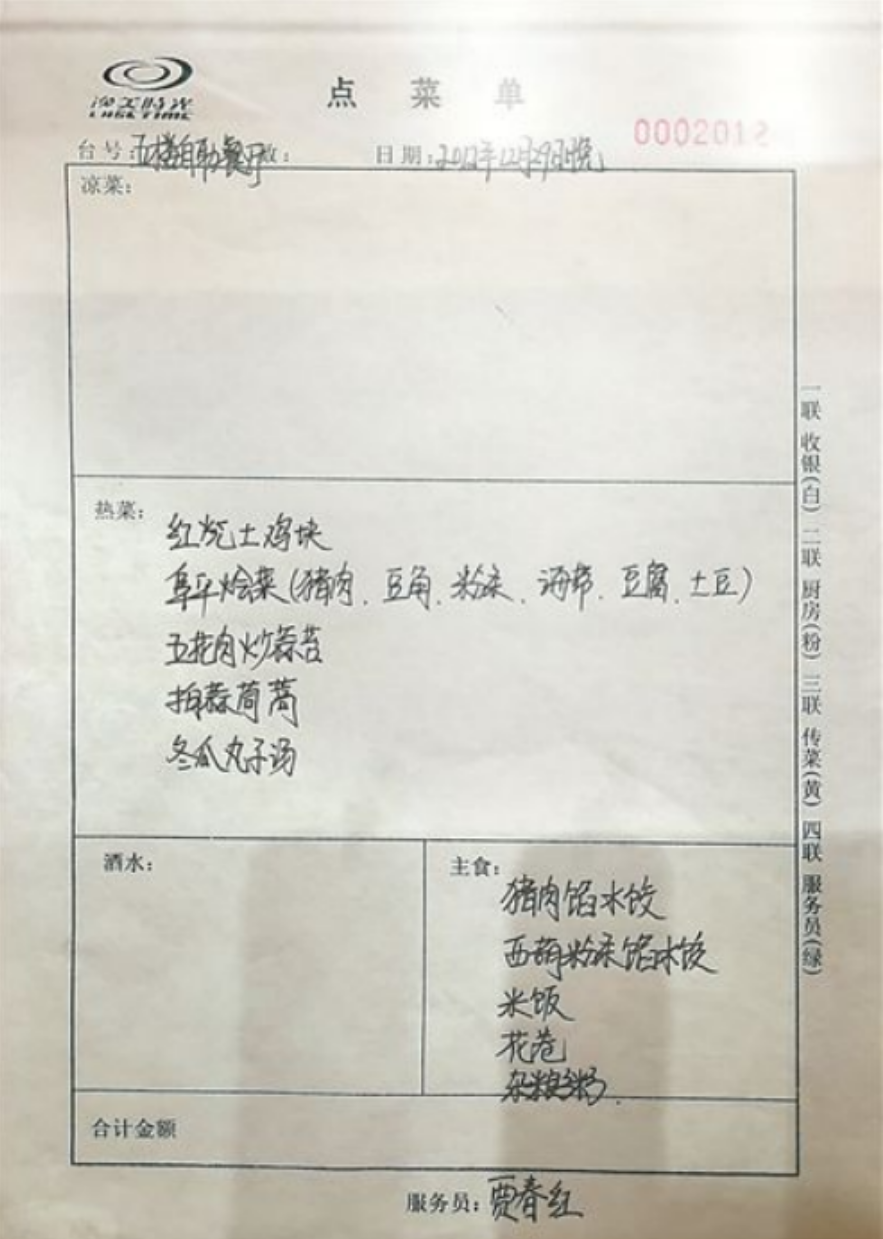 点菜单
LUGE TIME
000201
台号：五楼自助餐厅 数： 日期：2012年12月29日晚
凉菜：
热菜：
红烧土鸡块
阜平烩菜（猪肉、豆角、粉条、海带、豆腐、土豆）
五花肉炒蒜苔
拍蒜茼蒿
冬瓜丸子汤
酒水：
主食：
猪肉馅水饺
西葫粉条馅水饺
米饭
花卷
杂粮粥.
合计金额
服务员：贾春红
一联 收银(白) 二联 厨房(粉) 三联 传菜(黄) 四联 服务员(绿)